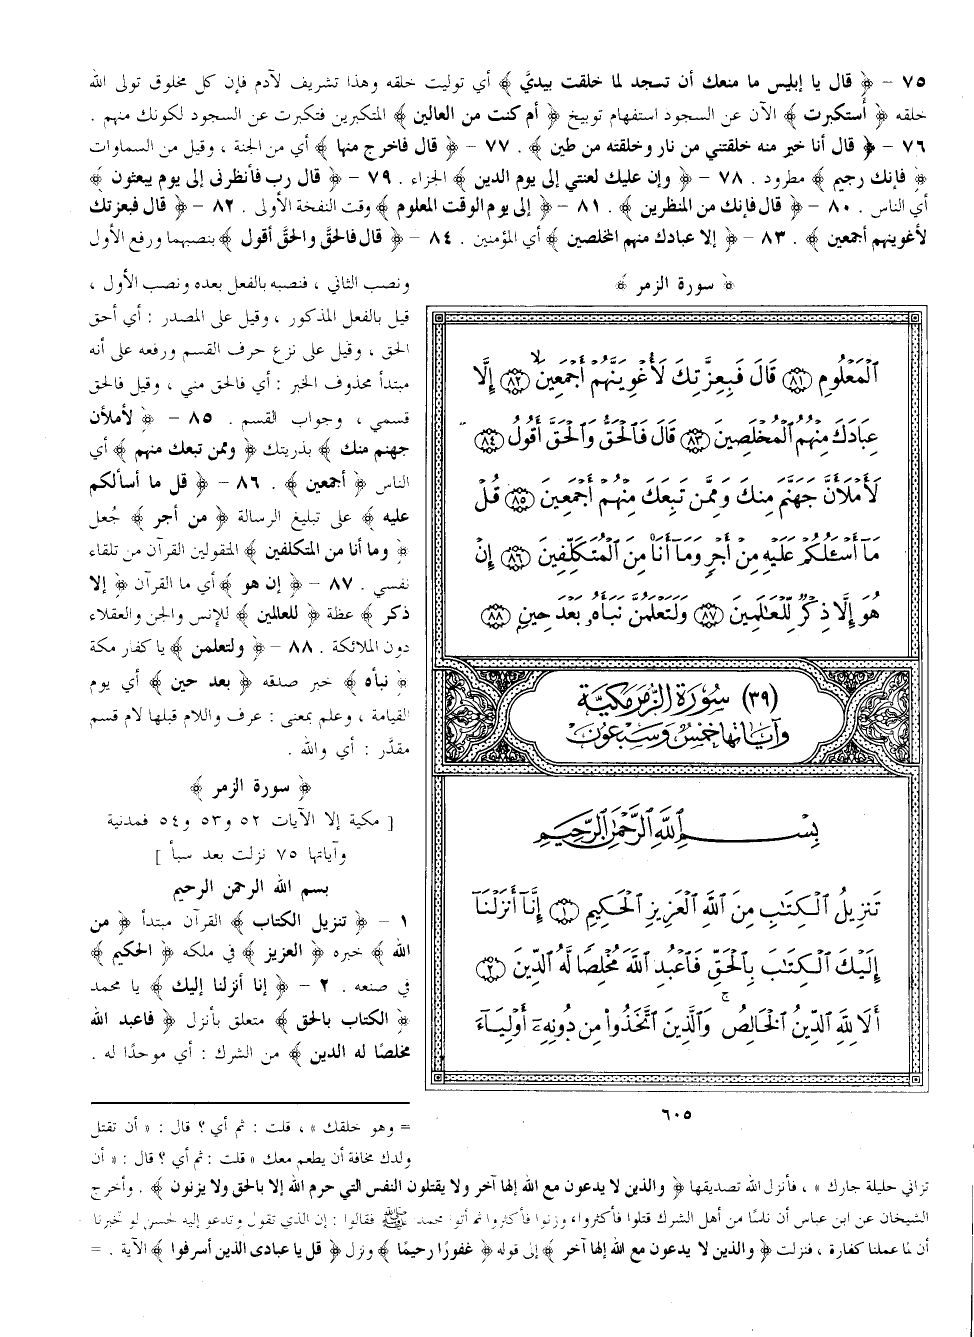 ٧٥ – ﴿ قال يا إبليس ما منعك أن تسجد لما خلقت بيديَّ ﴾ أي توليت خلقه وهذا تشريف لآدم فإن كل مخلوق تولى الله
خلقه ﴿ أستكبرت ﴾ الآن عن السجود استفهام توبيخ ﴿ أم كنت من العالين ﴾ المتكبرين فتكبرت عن السجود لكونك منهم .
٧٦ – ﴿ قال أنا خير منه خلقتني من نار وخلقته من طين ﴾ . ٧٧ – ﴿ قال فاخرج منها ﴾ أي من الجنة ، وقيل من السماوات
﴿ فإنك رجيم ﴾ مطرود . ٧٨ – ﴿ وإن عليك لعنتي إلى يوم الدين ﴾ الجزاء . ٧٩ – ﴿ قال رب فأنظرني إلى يوم يبعثون ﴾
أي الناس . ٨٠ – ﴿ قال فإنك من المنظرين ﴾ . ٨١ – ﴿ إلى يوم الوقت المعلوم ﴾ وقت النفخة الأولى . ٨٢ – ﴿ قال فبعزتك
لأغوينهم أجمعين ﴾ . ٨٣ – ﴿ إلا عبادك منهم المخلصين ﴾ أي المؤمنين . ٨٤ – ﴿ قال فالحقَّ والحقَّ أقول ﴾ بنصبهما ورفع الأول
﴿ سورة الزمر ﴾
ٱلۡمَعۡلُومِ ٨١ قَالَ فَبِعِزَّتِكَ لَأُغۡوِيَنَّهُمۡ أَجۡمَعِينَ ٨٢ إِلَّا
عِبَادَكَ مِنۡهُمُ ٱلۡمُخۡلَصِينَ ٨٣ قَالَ فَٱلۡحَقُّ وَٱلۡحَقَّ أَقُولُ ٨٤
لَأَمۡلَأَنَّ جَهَنَّمَ مِنكَ وَمِمَّن تَبِعَكَ مِنۡهُمۡ أَجۡمَعِينَ ٨٥ قُلۡ
مَآ أَسۡـَٔلُكُمۡ عَلَيۡهِ مِنۡ أَجۡرٖ وَمَآ أَنَا۠ مِنَ ٱلۡمُتَكَلِّفِينَ ٨٦ إِنۡ
هُوَ إِلَّا ذِكۡرٞ لِّلۡعَٰلَمِينَ ٨٧ وَلَتَعۡلَمُنَّ نَبَأَهُۥ بَعۡدَ حِينِۭ ٨٨
(٣٩) سُورَة الزُّمَر مَكِيَّة
وآياتها خمس وسبعون
بِسۡمِ ٱللَّهِ ٱلرَّحۡمَٰنِ ٱلرَّحِيمِ
تَنزِيلُ ٱلۡكِتَٰبِ مِنَ ٱللَّهِ ٱلۡعَزِيزِ ٱلۡحَكِيمِ ١ إِنَّآ أَنزَلۡنَآ
إِلَيۡكَ ٱلۡكِتَٰبَ بِٱلۡحَقِّ فَٱعۡبُدِ ٱللَّهَ مُخۡلِصٗا لَّهُ ٱلدِّينَ ٢
أَلَا لِلَّهِ ٱلدِّينُ ٱلۡخَالِصُۚ وَٱلَّذِينَ ٱتَّخَذُواْ مِن دُونِهِۦٓ أَوۡلِيَآءَ
٦٠٥
ونصب الثاني ، فنصبه بالفعل بعده ونصب الأول ،
قيل بالفعل المذكور ، وقيل على المصدر : أي أحق
الحق ، وقيل على نزع حرف القسم ورفعه على أنه
مبتدأ محذوف الخبر : أي فالحق مني ، وقيل فالحق
قسمي ، وجواب القسم . ٨٥ – ﴿ لأملأن
جهنم منك ﴾ بذريتك ﴿ وممن تبعك منهم ﴾ أي
الناس ﴿ أجمعين ﴾ . ٨٦ – ﴿ قل ما أسألكم
عليه ﴾ على تبليغ الرسالة ﴿ من أجر ﴾ جُعل
﴿ وما أنا من المتكلفين ﴾ المتقولين القرآن من تلقاء
نفسي . ٨٧ – ﴿ إن هو ﴾ أي ما القرآن ﴿ إلا
ذكر ﴾ عظة ﴿ للعالمين ﴾ للإنس والجن والعقلاء
دون الملائكة . ٨٨ – ﴿ ولتعلمن ﴾ يا كفار مكة
﴿ نبأه ﴾ خبر صدقه ﴿ بعد حين ﴾ أي يوم
القيامة ، وعلم بمعنى : عرف واللام قبلها لام قسم
مقدَّر : أي والله .
﴿ سورة الزمر ﴾
[ مكية إلا الآيات ٥٢ و٥٣ و٥٤ فمدنية
وآياتها ٧٥ نزلت بعد سبأ ]
بسم الله الرحمن الرحيم
١ – ﴿ تنزيل الكتاب ﴾ القرآن مبتدأ ﴿ من
الله ﴾ خبره ﴿ العزيز ﴾ في ملكه ﴿ الحكيم ﴾
في صنعه . ٢ – ﴿ إنا أنزلنا إليك ﴾ يا محمد
﴿ الكتاب بالحق ﴾ متعلق بأنزل ﴿ فاعبد الله
مخلصًا له الدين ﴾ من الشرك : أي موحدًا له .
= وهو خلقك » ، قلت : ثم أي ؟ قال : « أن تقتل
ولدك مخافة أن يطعم معك » قلت : ثم أي ؟ قال : « أن
تزاني حليلة جارك » ، فأنزل الله تصديقها ﴿ والذين لا يدعون مع الله إلها آخر ولا يقتلون النفس التي حرم الله إلا بالحق ولا يزنون ﴾ . وأخرج
الشيخان عن ابن عباس أن ناسًا من أهل الشرك قتلوا فأكثروا، وزنوا فأكثروا ثم أتوا محمد ﷺ فقالوا : إن الذي تقول وتدعو إليه لحسن لو تخبرنا
أن لما عملنا كفارة ، فنزلت ﴿ والذين لا يدعون مع الله إلها آخر ﴾ إلى قوله ﴿ غفورًا رحيمًا ﴾ ونزل ﴿ قل يا عبادي الذين أسرفوا ﴾ الآية . =